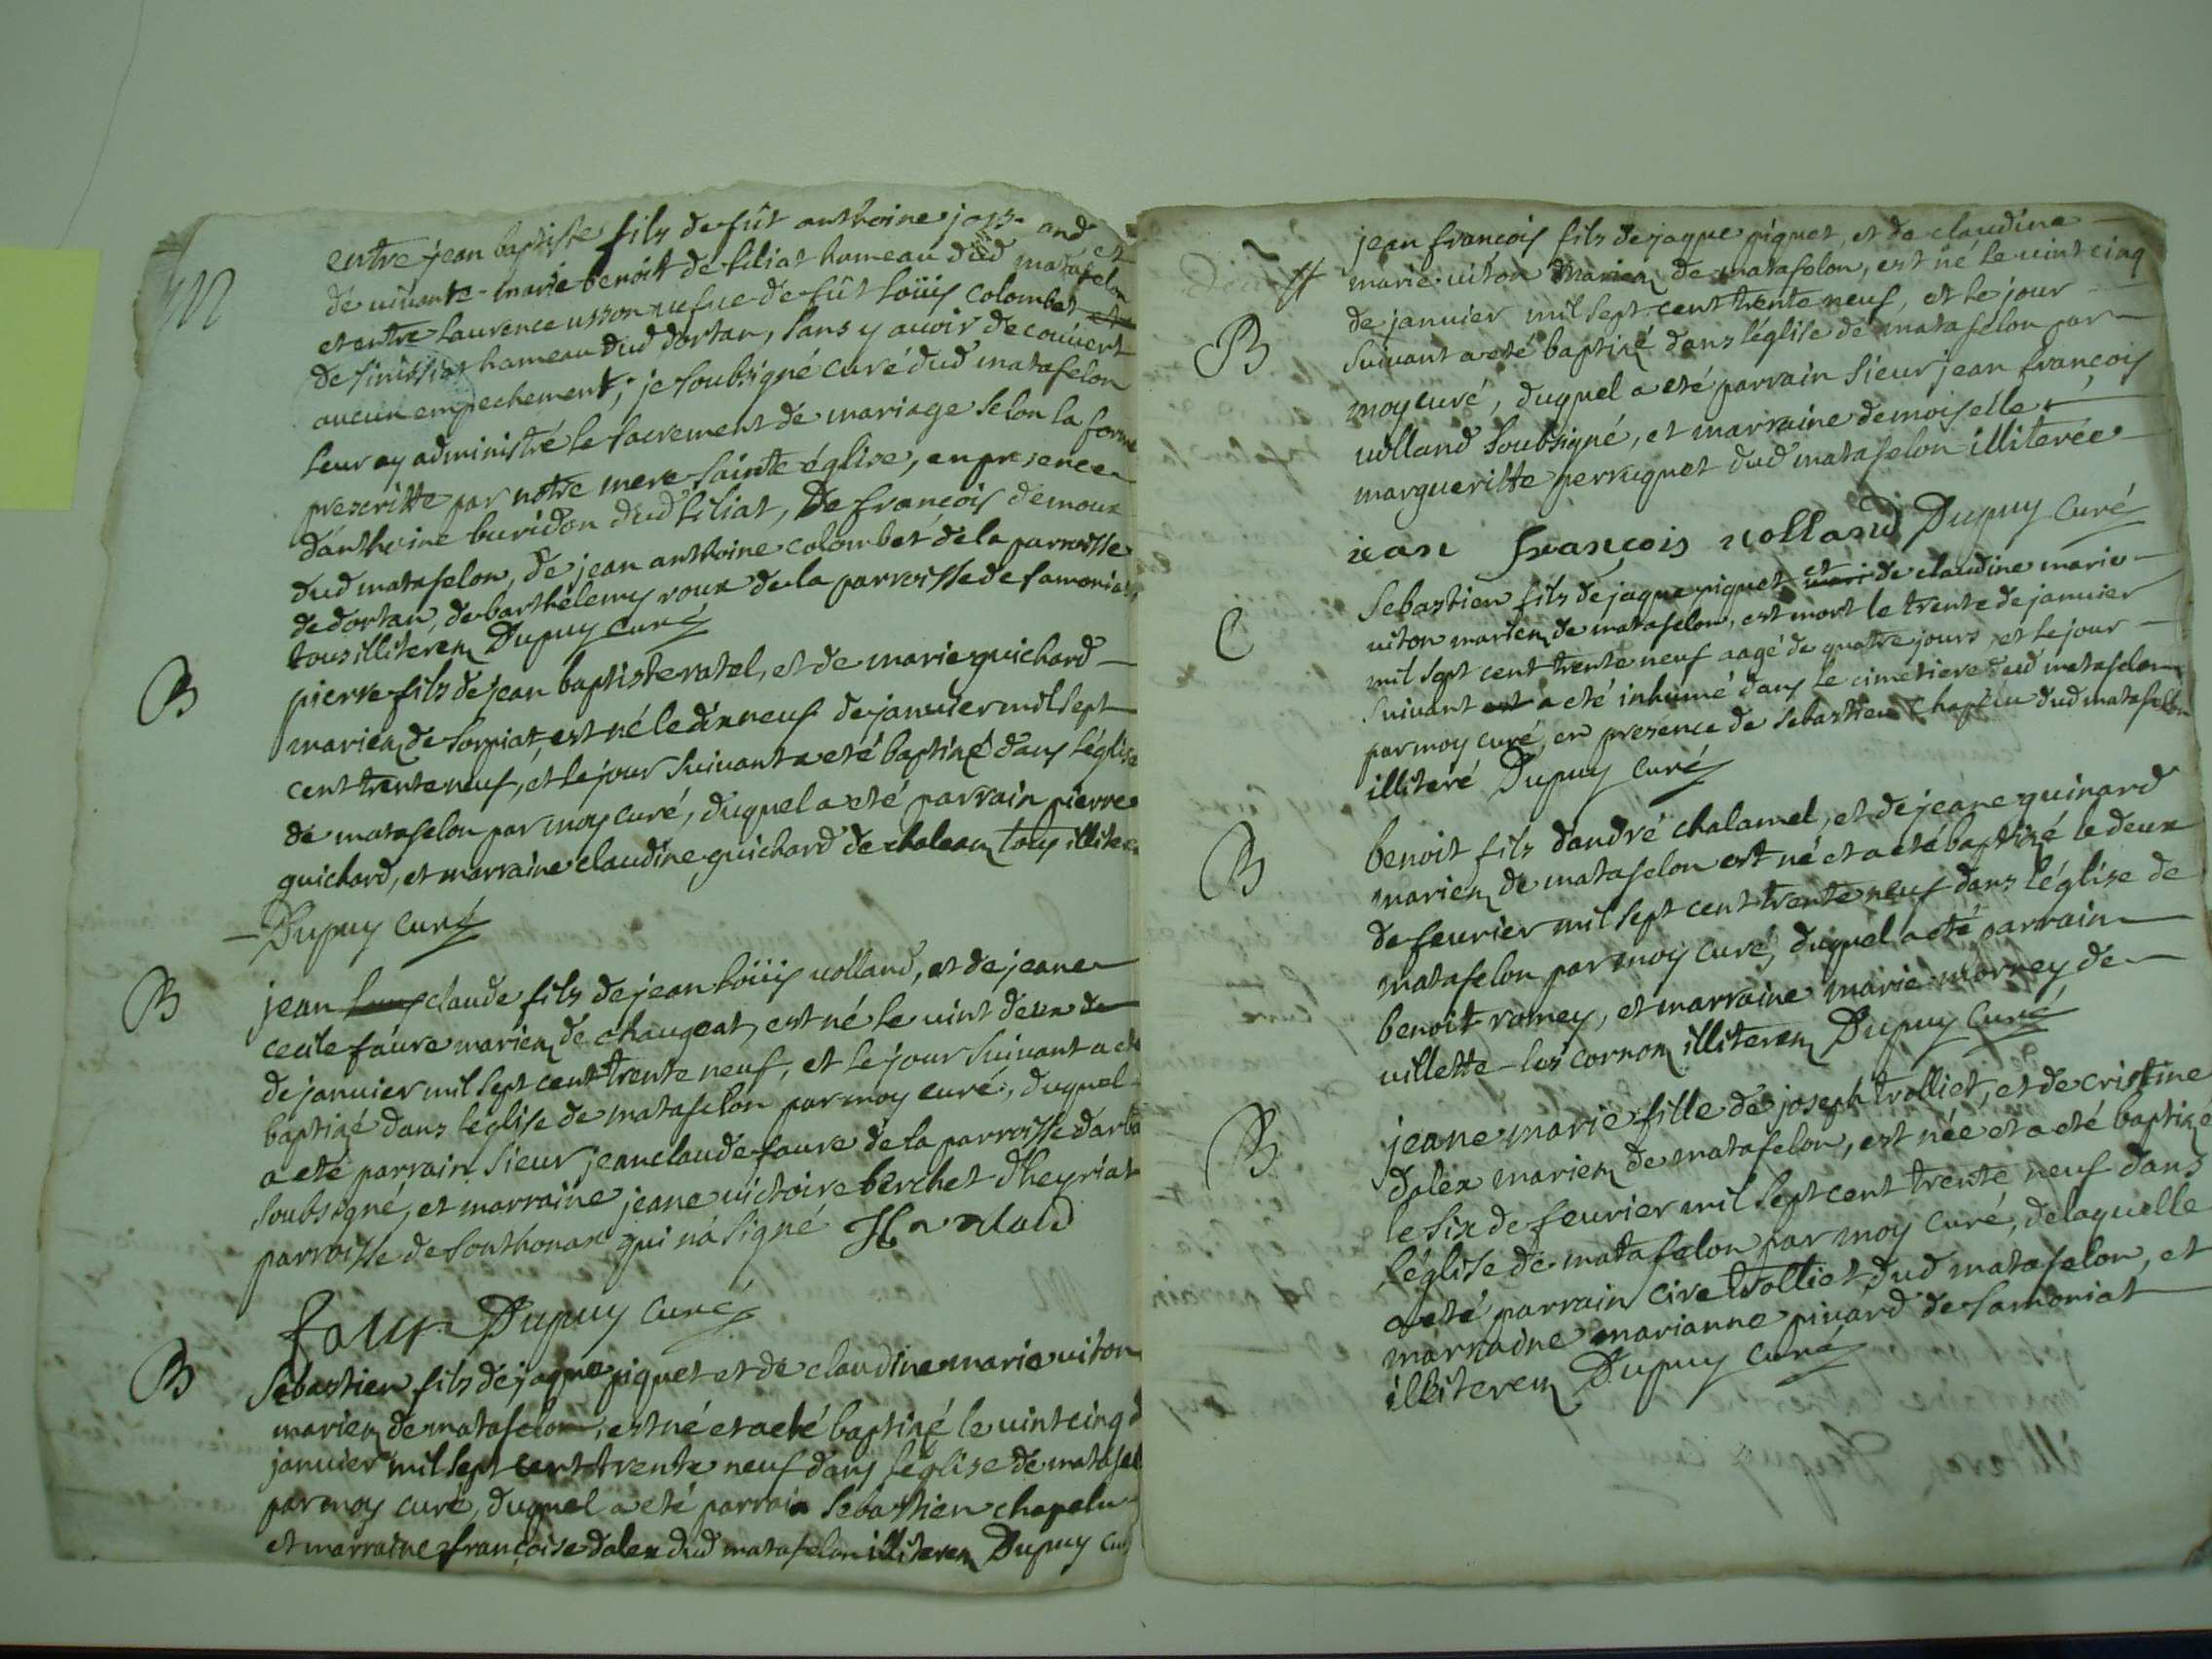 M
entre jean baptiste fils de fût anthoine joss and et
de vivante marie benoit de siliat hameau dud matafelon
et entre laurence usson uefue de fût loüis colombet
de sinissiat hameau dud dortan, sans y auoir decouuert
aucun empechement, je soubsigné curé dud matafelon
leur ay administré le sacrement de mariage selon la forme
prescritte par notre mere sainte église, en presence
danthoine buridon dud siliat, de françois demoux
dud matafelon, de jean anthoine colombet de la parroisse
de dortan, de barthelemy roux de la parroisse de samoniat
tous illiterez Dupuy curé
B
pierre fils de jean baptiste ratel, et de marie guichard
mariez de sorpiat, est né le dix neuf de januier mil sept
cent trente neuf, et le jour suiuant a eté baptizé dans léglise
de matafelon par moy curé, duquel a eté parrain pierre
guichard, et marraine claudine guichard de chaleaz tous illiterez
Dupuy curé
B
jean claude fils de jean loüis uolland, et de jeane
cecile faure mariez de chaugeat, est né le uint deux de
de januier mil sept cent trente neuf, et le jour suiuant a eté
baptizé dans léglise de matafelon par moy curé, duquel
a eté parrain sieur jean claude faure de la parroisse darb
soubsigné, et marraine jeane uictoire berchet dheyriat
parroisse de sonthonax qui ná signé
faur Dupuy curé
B
Sébastien fils de jaque piquet et de claudine marie uiton
mariez de matafelon, est né et a eté baptizé le uint cinq d
januier mil sept cent trente neuf dans léglise de matafel
par moy curé, duquel a eté parrain sebastien chapelu
et marraine françoise dalex dud matafelon illiterez Dupuy cur
jean françois fils de jaque piquet, et de claudine
marie uiton mariez de matafelon, est né le uint cinq
de januier mil sept cent trente neuf, et le jour
B
suiuant a eté baptizé dans léglise de matafelon par
moy curé, duquel a eté parrain sieur jean françois
uolland soubsigné, et marraine demoiselle
margueritte perruquet dud matafelon illiterée
jean françois uolland Dupuy curé
Sebastien fils de jaque piquet et de claudine marie
C
uiton mariez de matafelon, est mort le trente de januier
mil sept cent trente neuf aagé de quatre jours, et le jour
suiuant est a eté inhumé dans le cimetiere dud matafelon
par moy curé, en presence de sebastien chapelu dud matafelon
illiteré Dupuy curé
B
benoit fils dandré chalamel, et de jeane guinard
mariez de matafelon est né et a eté baptizé le deux
de feurier mil sept cent trente neuf dans léglise de
matafelon par moy curé, duquel a eté parrain
benoit romey, et marraine marie morrey de
uillette les cornon illiterez Dupuy curé
B
jeane marie fille de joseph trolliet, et de cristine
dalex mariez de matafelon, est née et a eté baptizé
le six de feurier mil sept cent trente neuf dans
léglise de matafelon par moy curé, de laquelle
a eté parrain cire trolliet dud matafelon, et
marraine marianne piuard de samoniat
illiterez Dupuy curé